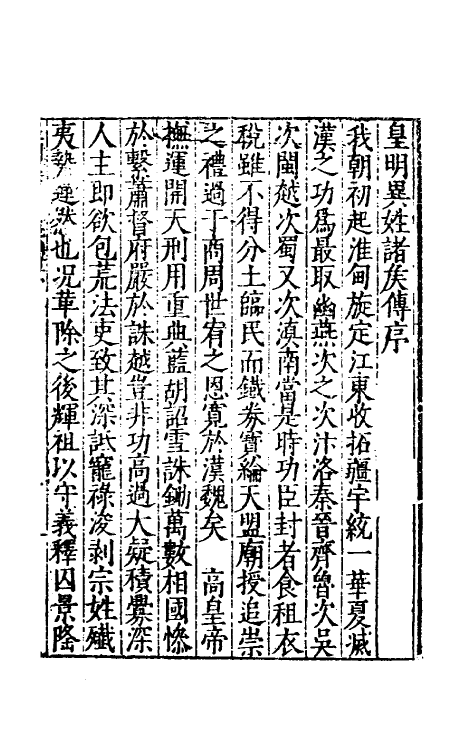 皇明異姓諸矦傳序
我朝初起淮甸旋定江東收拓疆宇統一華夏滅
漢之功爲最取幽燕次之次汴洛秦晉齊魯次吳
次閩越次蜀又次滇南當是時功臣封者食租衣
稅雖不得分土臨民而鐵券寶綸天盟廟授追崇
之禮過于商周世宥之恩寛於漢魏矣　高皇帝
撫運開天刑用重典藍胡詔雪誅鋤萬數相國慘
於繫蕭督府嚴於誅越豈非功高過大疑積釁深
人主即欲包荒法吏致其深詆寵祿凌剥宗姓殱
夷勢遷然也况華除之後輝祖以守義釋囚景隆